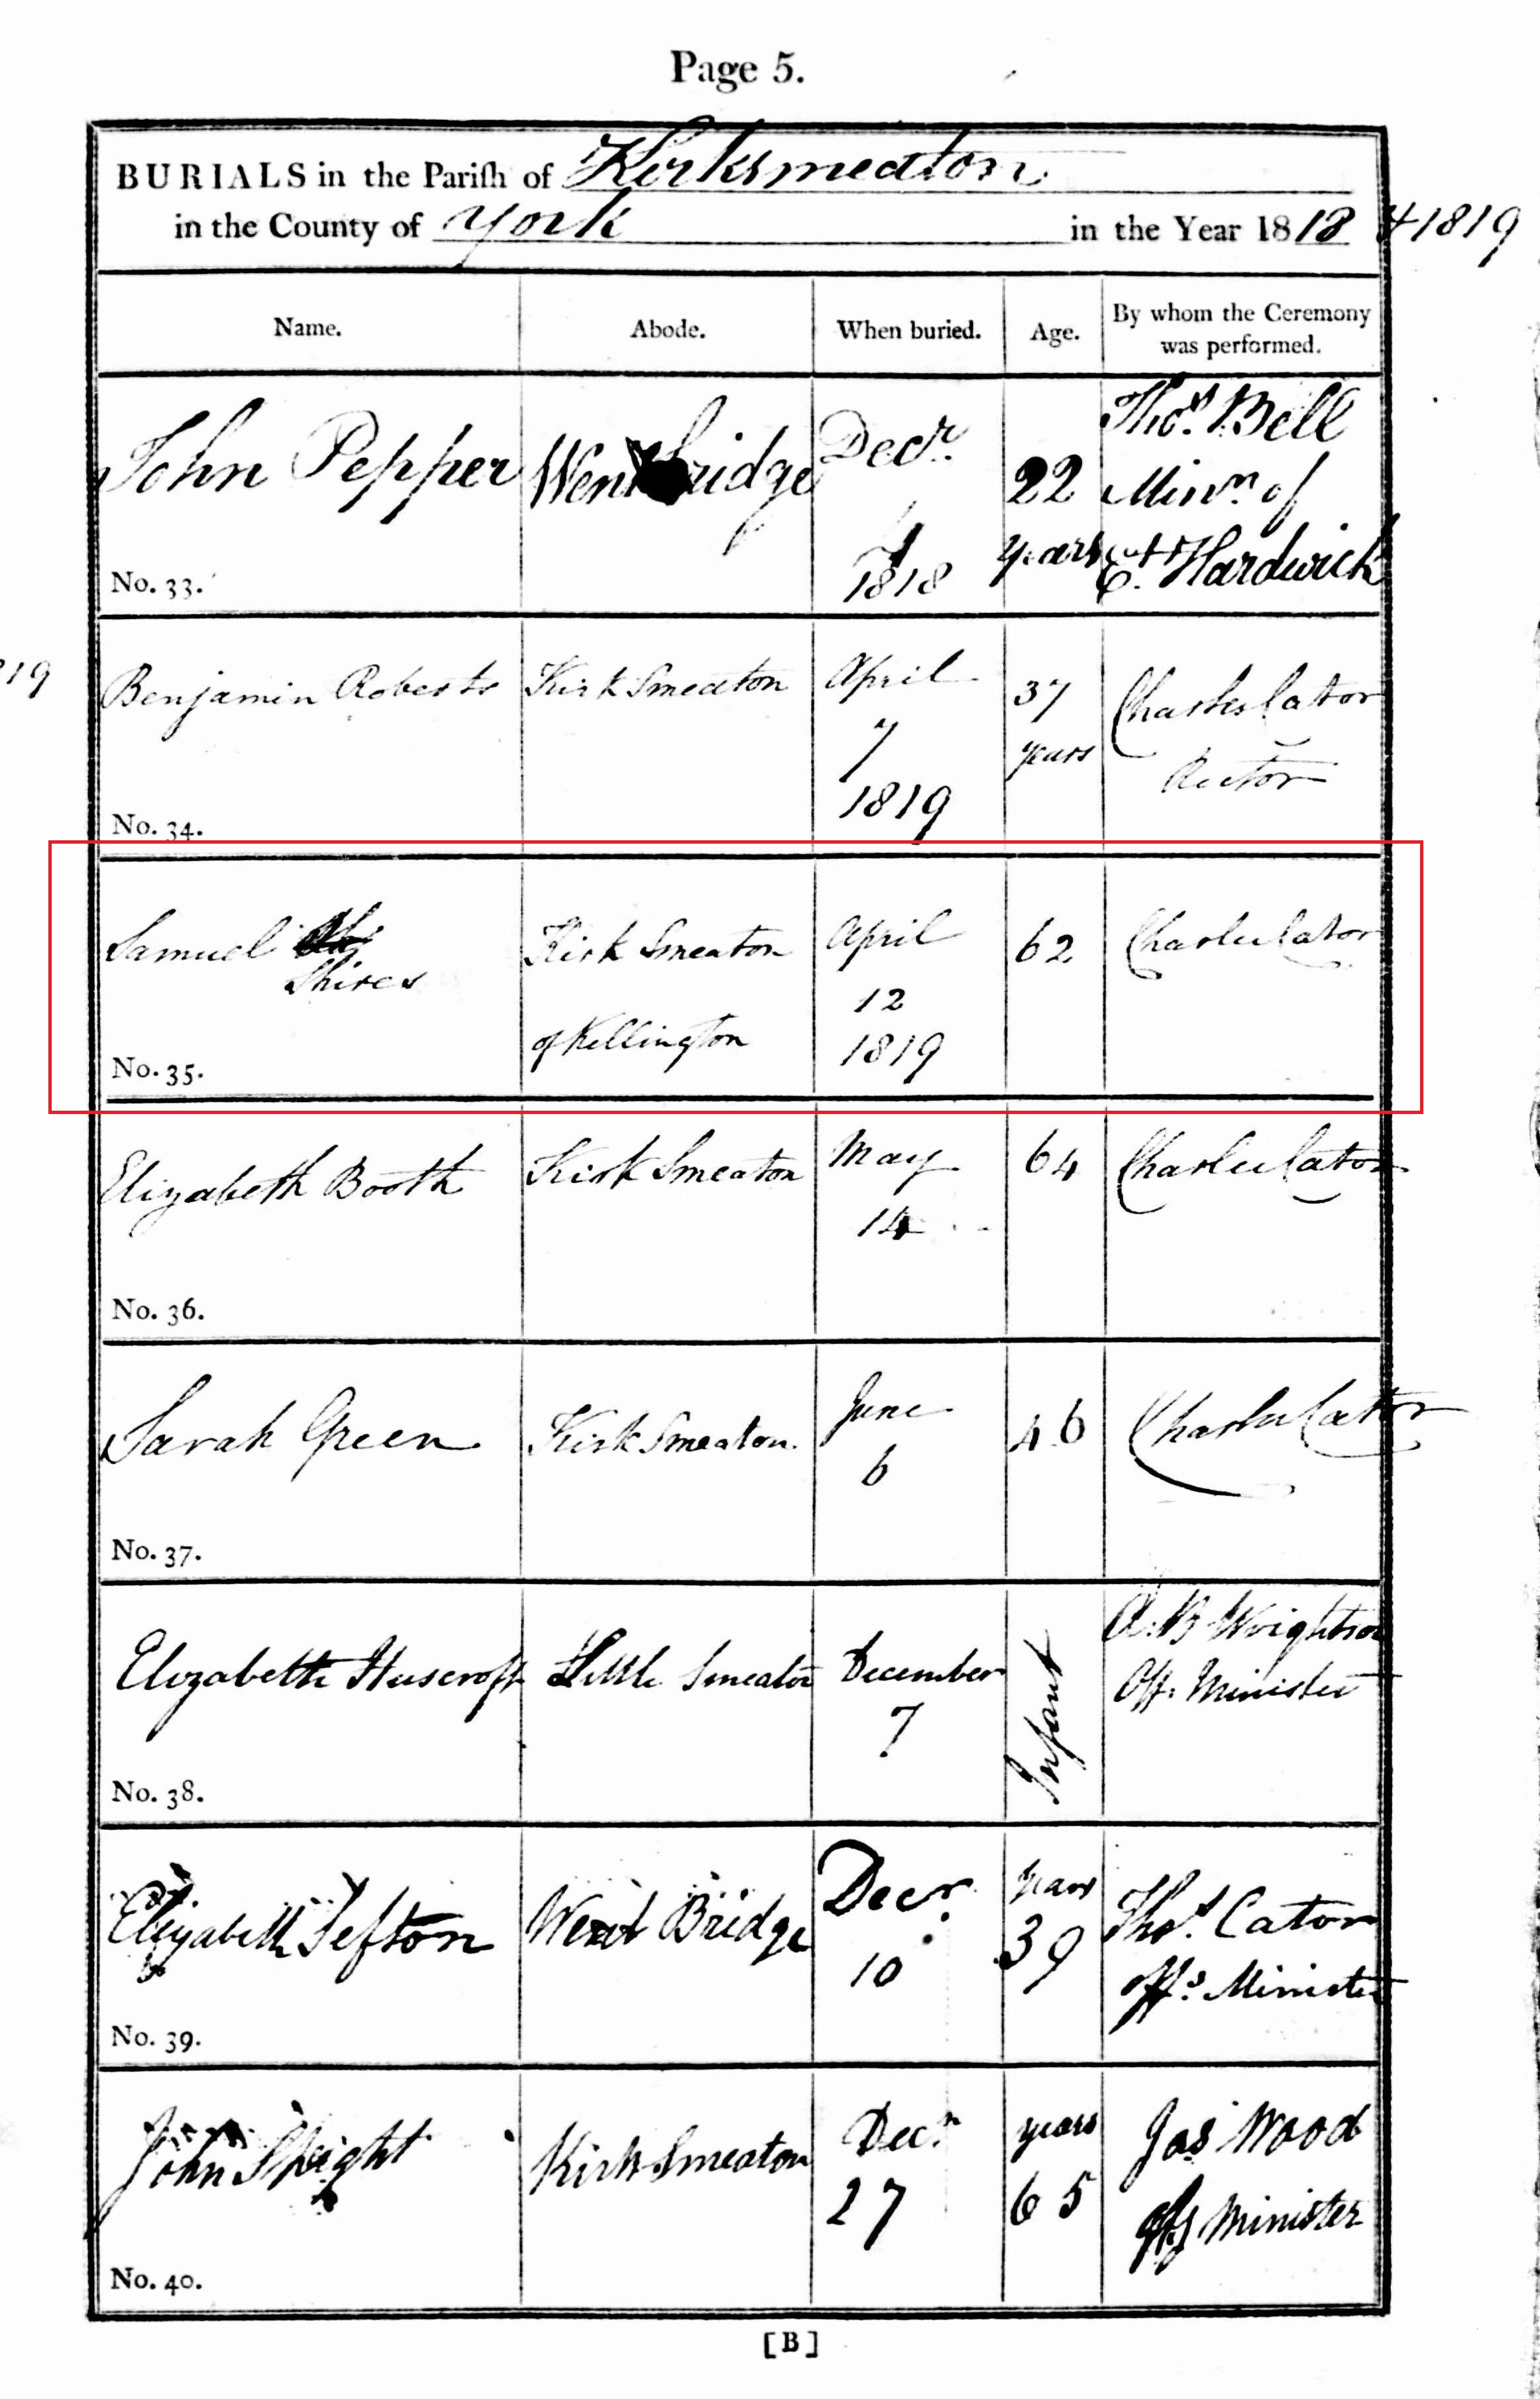 Page 5.
BURIALS in the Parish of Kirksmeaton
in the County of York in the Year 1818 & 1819
Name. Abode. When buried. Age. By whom the Ceremony was performed.
John Pepper
No. 33.
Wentbridge
Decr.
1818
22
years
Thos. Bell
Minr. of
Et. Hardwick
19
Benjamin Roberts
No. 34.
Kirk Smeaton
April
7
1819
37
years
Charles Cator
Rector
Samuel
Shires
No. 35.
Kirk Smeaton
of Kellington
April
12
1819
62
Charles Cator
Elizabeth Booth
No. 36.
Kirk Smeaton
May
14
64
Charles Cator
Sarah Green
No. 37.
Kirk Smeaton
June
6
46
Charles Cator
Elizabeth Huscroft
No. 38.
Little Smeaton
December
7
Infant
A. B. Wrightson
Off. Minister
Elizabeth Sefton
No. 39.
Went Bridge
Decr.
10
years
39
Thos. Cator
Offg. Minister
John Speight
No. 40.
Kirk Smeaton
Decr.
27
years
65
Jas Wood
Offg Minister
[B]